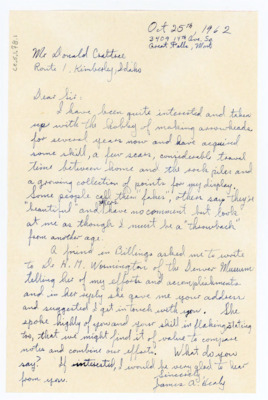 Oct 25th 1962
2409 14th Ave. So
Great Falls, Mont
Mr Donald Crabtree
Route 1, Kimberly, Idaho
Dear Sir:
I have been quite interested and taken
up with the hobby of making arrowheads
for several years now and have acquired
some skill, a few scars, considerable travel
time between home and the rock piles and
a growing collection of points for my display.
Some people call them "fakes", others say they're
"beautiful" and have no comment but looks
at me as though I must be a "throwback"
from another age.
A friend in Billings asked me to write
to Dr H. M. Wormington of the Denver Museum
telling her of my efforts and accomplishments
and in her reply she gave me your address
and suggested I get in touch with you. She
spoke highly of you and your skill in flaking stating
too, that we might find it of value to compare
notes and combine our efforts. What do you
say? If interested, I would be very glad to hear
from you.
Sincerely
James A. Healy